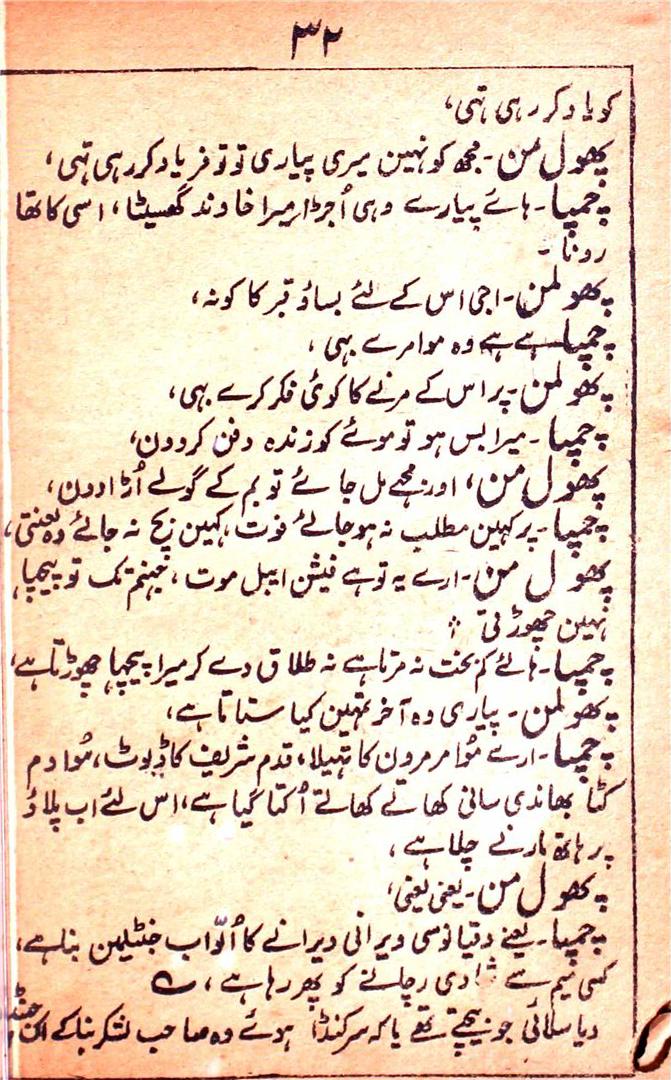 ۳۲
کو یاد کر رہی تہی،
پھول من۔ مجھ کو نہین میری پیاری تو تو فریاد کر رہی تہی،
چمپا۔ ہائے پیارے وہی اُجڑا میرا خاوند گھسیٹا، اسی کا تھا
رونا۔
پھولمن۔ اجی اس کے لئے بساؤ قبر کا کونہ،
چمپا۔ ہے ہے وہ موا مرے بہی،
پھولمن۔ پر اس کے مرنے کا کوئی فکر کرے بہی،
چمپا۔ میرا بس ہو تو موئے کو زندہ دفن کر دون،
پھول من، اور مجھے مل جائے تو بم کے گولے اُڑا دون،
چمپا۔ پر کہین مطلب نہ ہو جائے فوت، کہین بچ نہ جائے وہ لعنتی،
پھول من۔ ارے یہ تو ہے فیشن ایبل موت، جہنم تک تو پیچھا
نہین چھوڑتی
چمپا۔ ہائے کم بخت نہ مرتا ہے نہ طلاق دے کر میرا پیچہا چھوڑتا ہے،
پھولمن۔ پیاری وہ آخر تمہین کیا ستاتا ہے،
چمپا۔ ارے مُوا مرمرون کا تہیلا، قدم شریف کا ڈبوٹ، مُوا دم
کٹا بھاندی سانی کھاتے کھاتے اُکتا گیا ہے، اس لئے اب پلاؤ
پر ہاتھ مارنے چلا ہے،
پھول من۔ یعنی یعنی،
چمپا۔ یعنے دقیانوسی ویرانی ویرانے کا اُلّو اب جنٹلیمن بنا ہے،
کسی میم سے شادی رچانے کو پھر رہا ہے،
دیا سلائی جو بیچتے تھے یا کہ سرکنڈا ہوئے وہ صاحب لشکر بنا کے اک